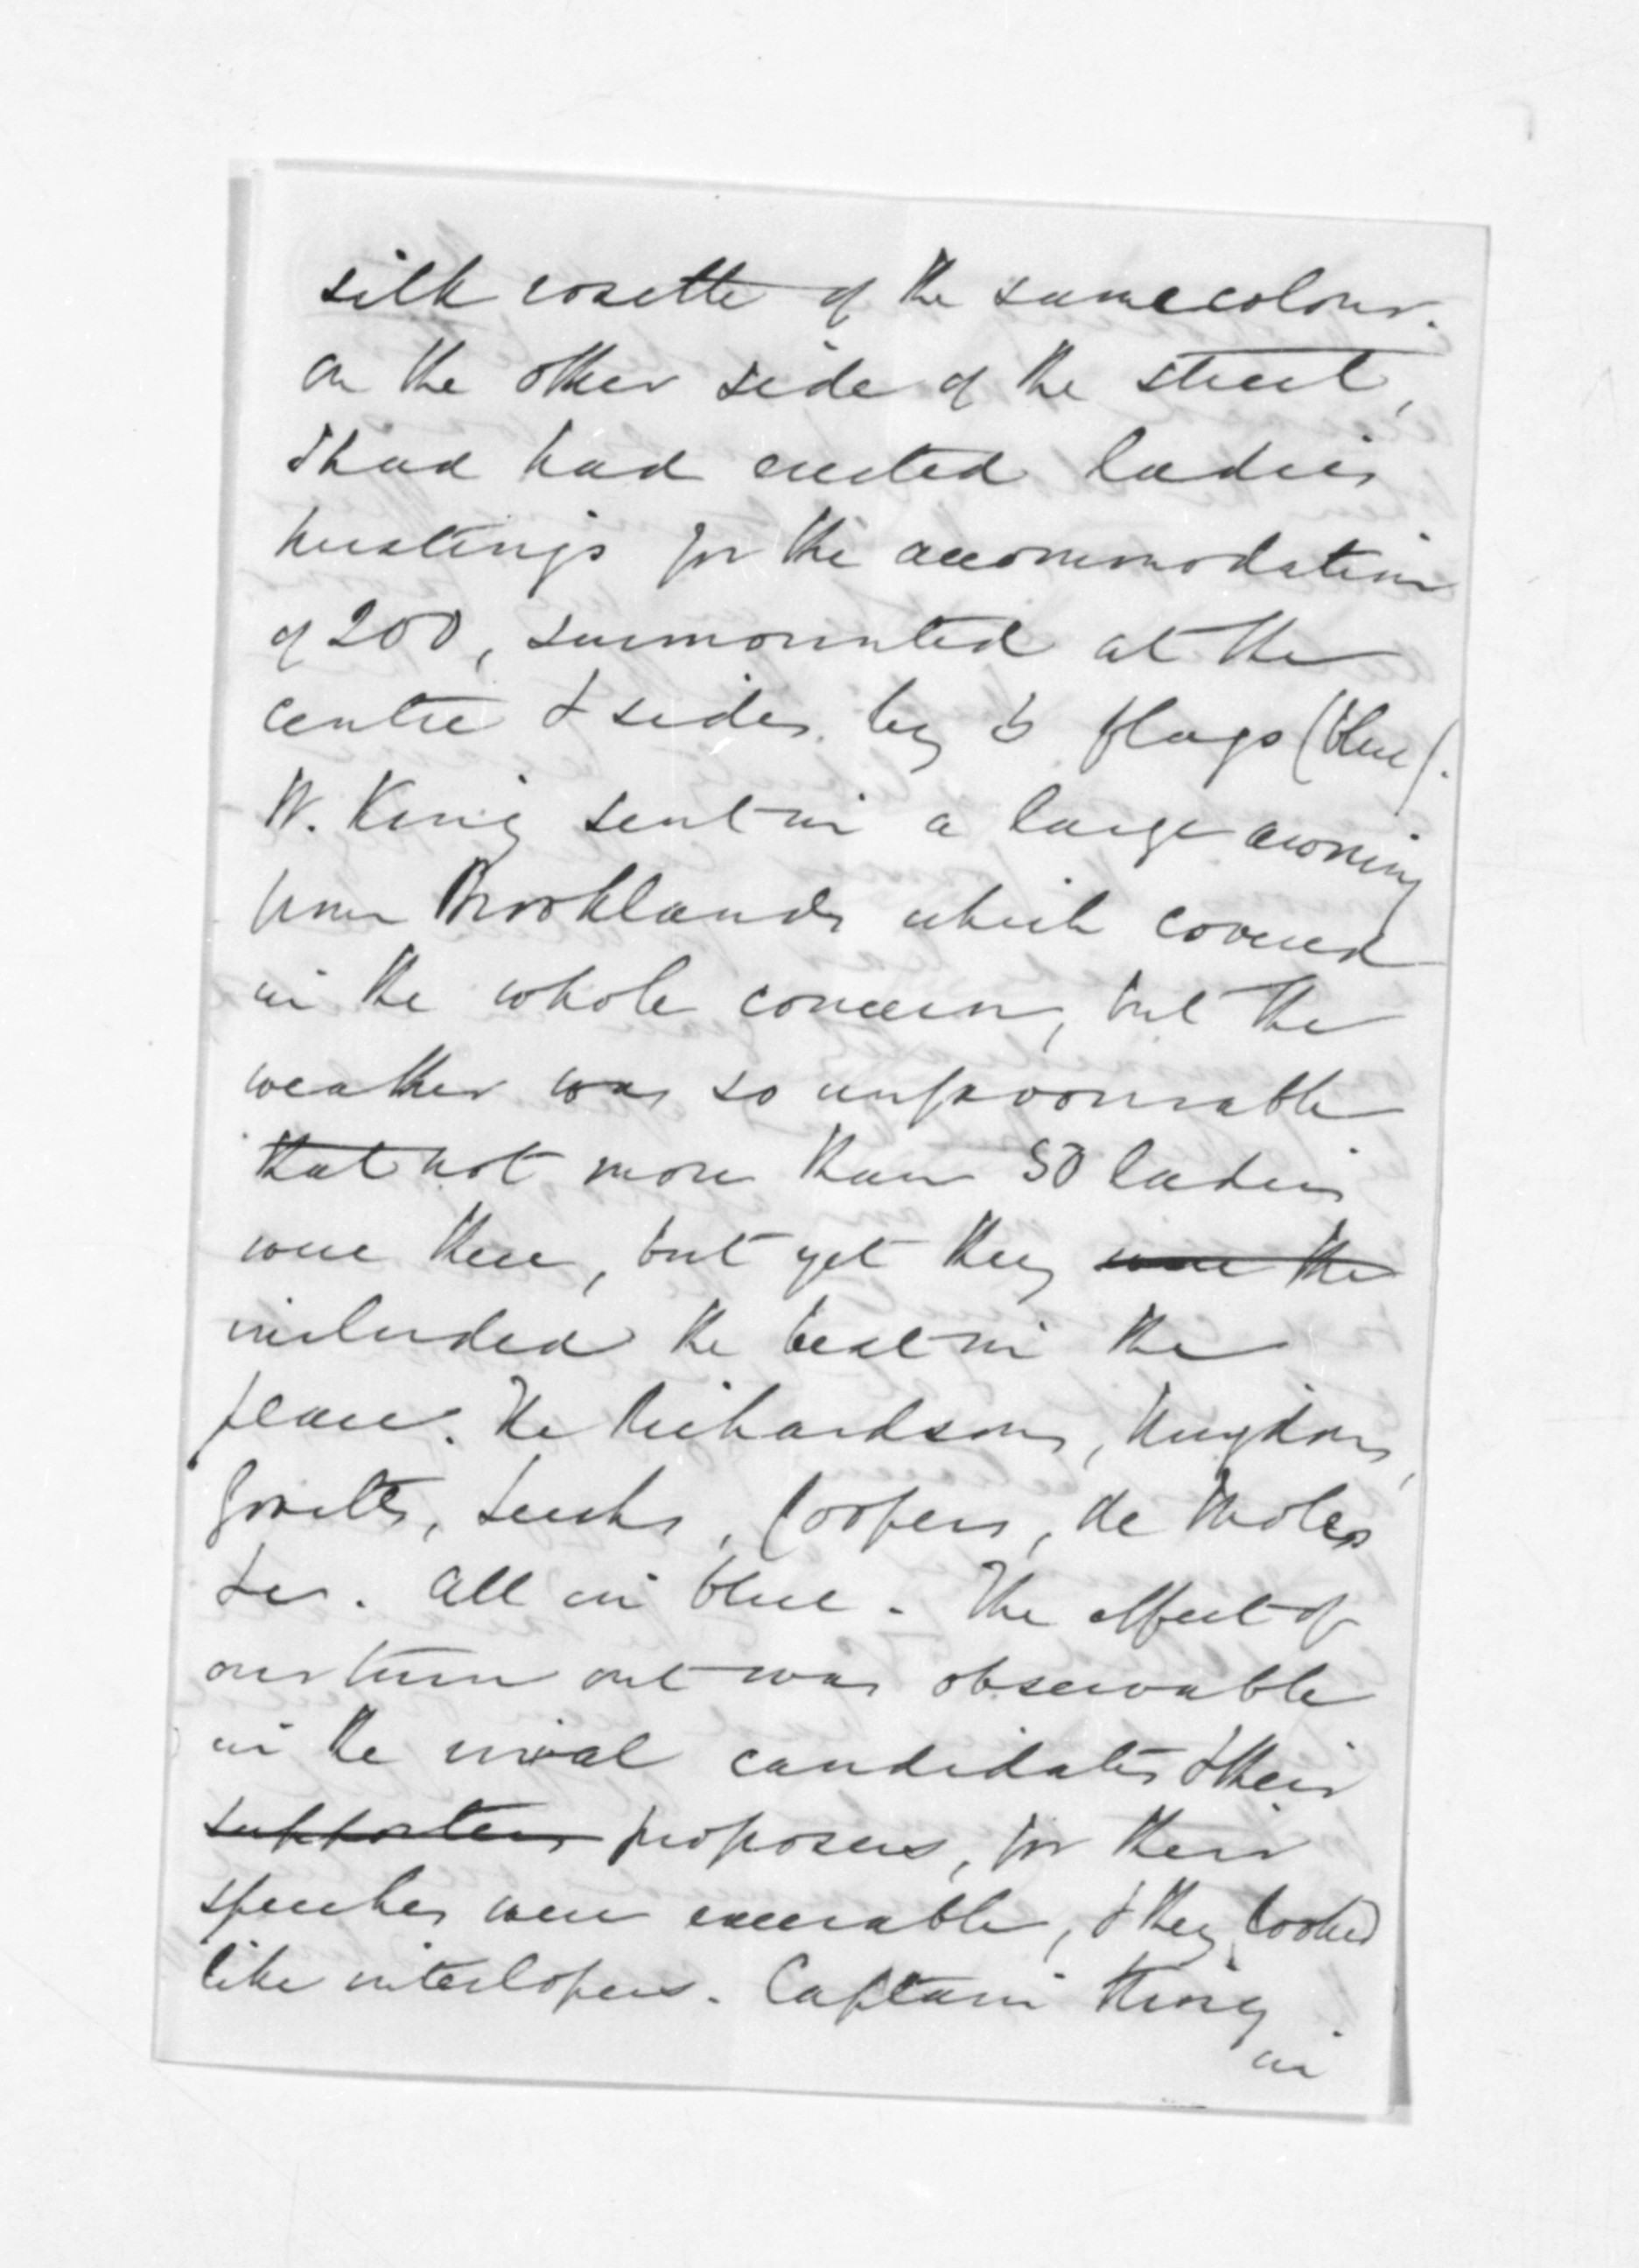 silk rosette of the same colour.
On the other side of the street,
I had had erected ladies
hustings for the accommodation
of 200, surmounted at the
centre & sides by 3 flags (blue).
W. King sent in a large awning
from Brooklands which covered
in the whole concern, but the
weather was so unfavourable
that not more than 50 ladies
were there, but yet they were the
included the best in the
place. The Richardsons,
Govetts, Leechs, Coopers, the
&c. All in blue. The effect of
our turn out was observable
in the rival candidates & their
supporters proposers, for their
speeches were execrable, & they looked
like interlopers. Captain King
in